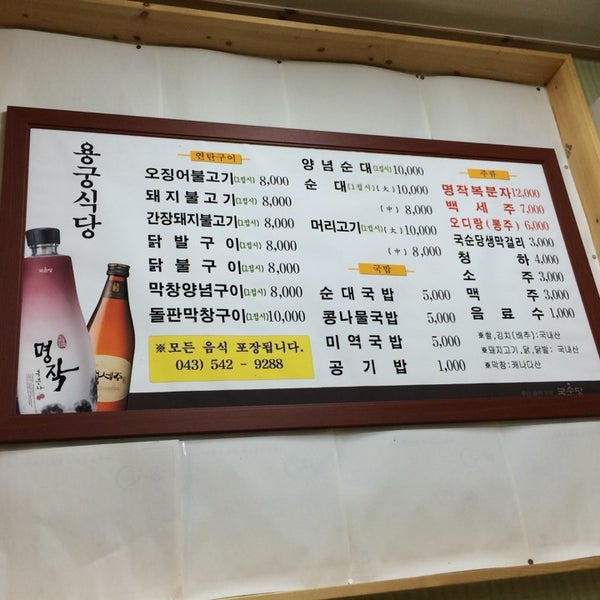 용궁식당
연탄구이
오징어불고기(1접시) 8,000
돼지불고기(1접시) 8,000
간장돼지불고기(1접시) 8,000
닭발구이(1접시) 8,000
닭불구이(1접시) 8,000
막창양념구이(1접시) 8,000
돌판막창구이(1접시) 10,000
※모든 음식 포장됩니다.
043) 542 - 9288
양념순대(1접시) 10,000
순대(1접시)(大) 10,000
(中) 8,000
머리고기(1접시)(大) 10,000
(中) 8,000
국밥
순대국밥 5,000
콩나물국밥 5,000
미역국밥 5,000
공기밥 1,000
주류
명작복분자 12,000
백세주 7,000
오디랑(뽕주) 6,000
국순당생막걸리 3,000
청하 4,000
소주 3,000
맥주 3,000
음료수 1,000
※쌀,김치(배추):국내산
※돼지고기,닭,닭발: 국내산
※막창:캐나다산
국순당
명작
백세주